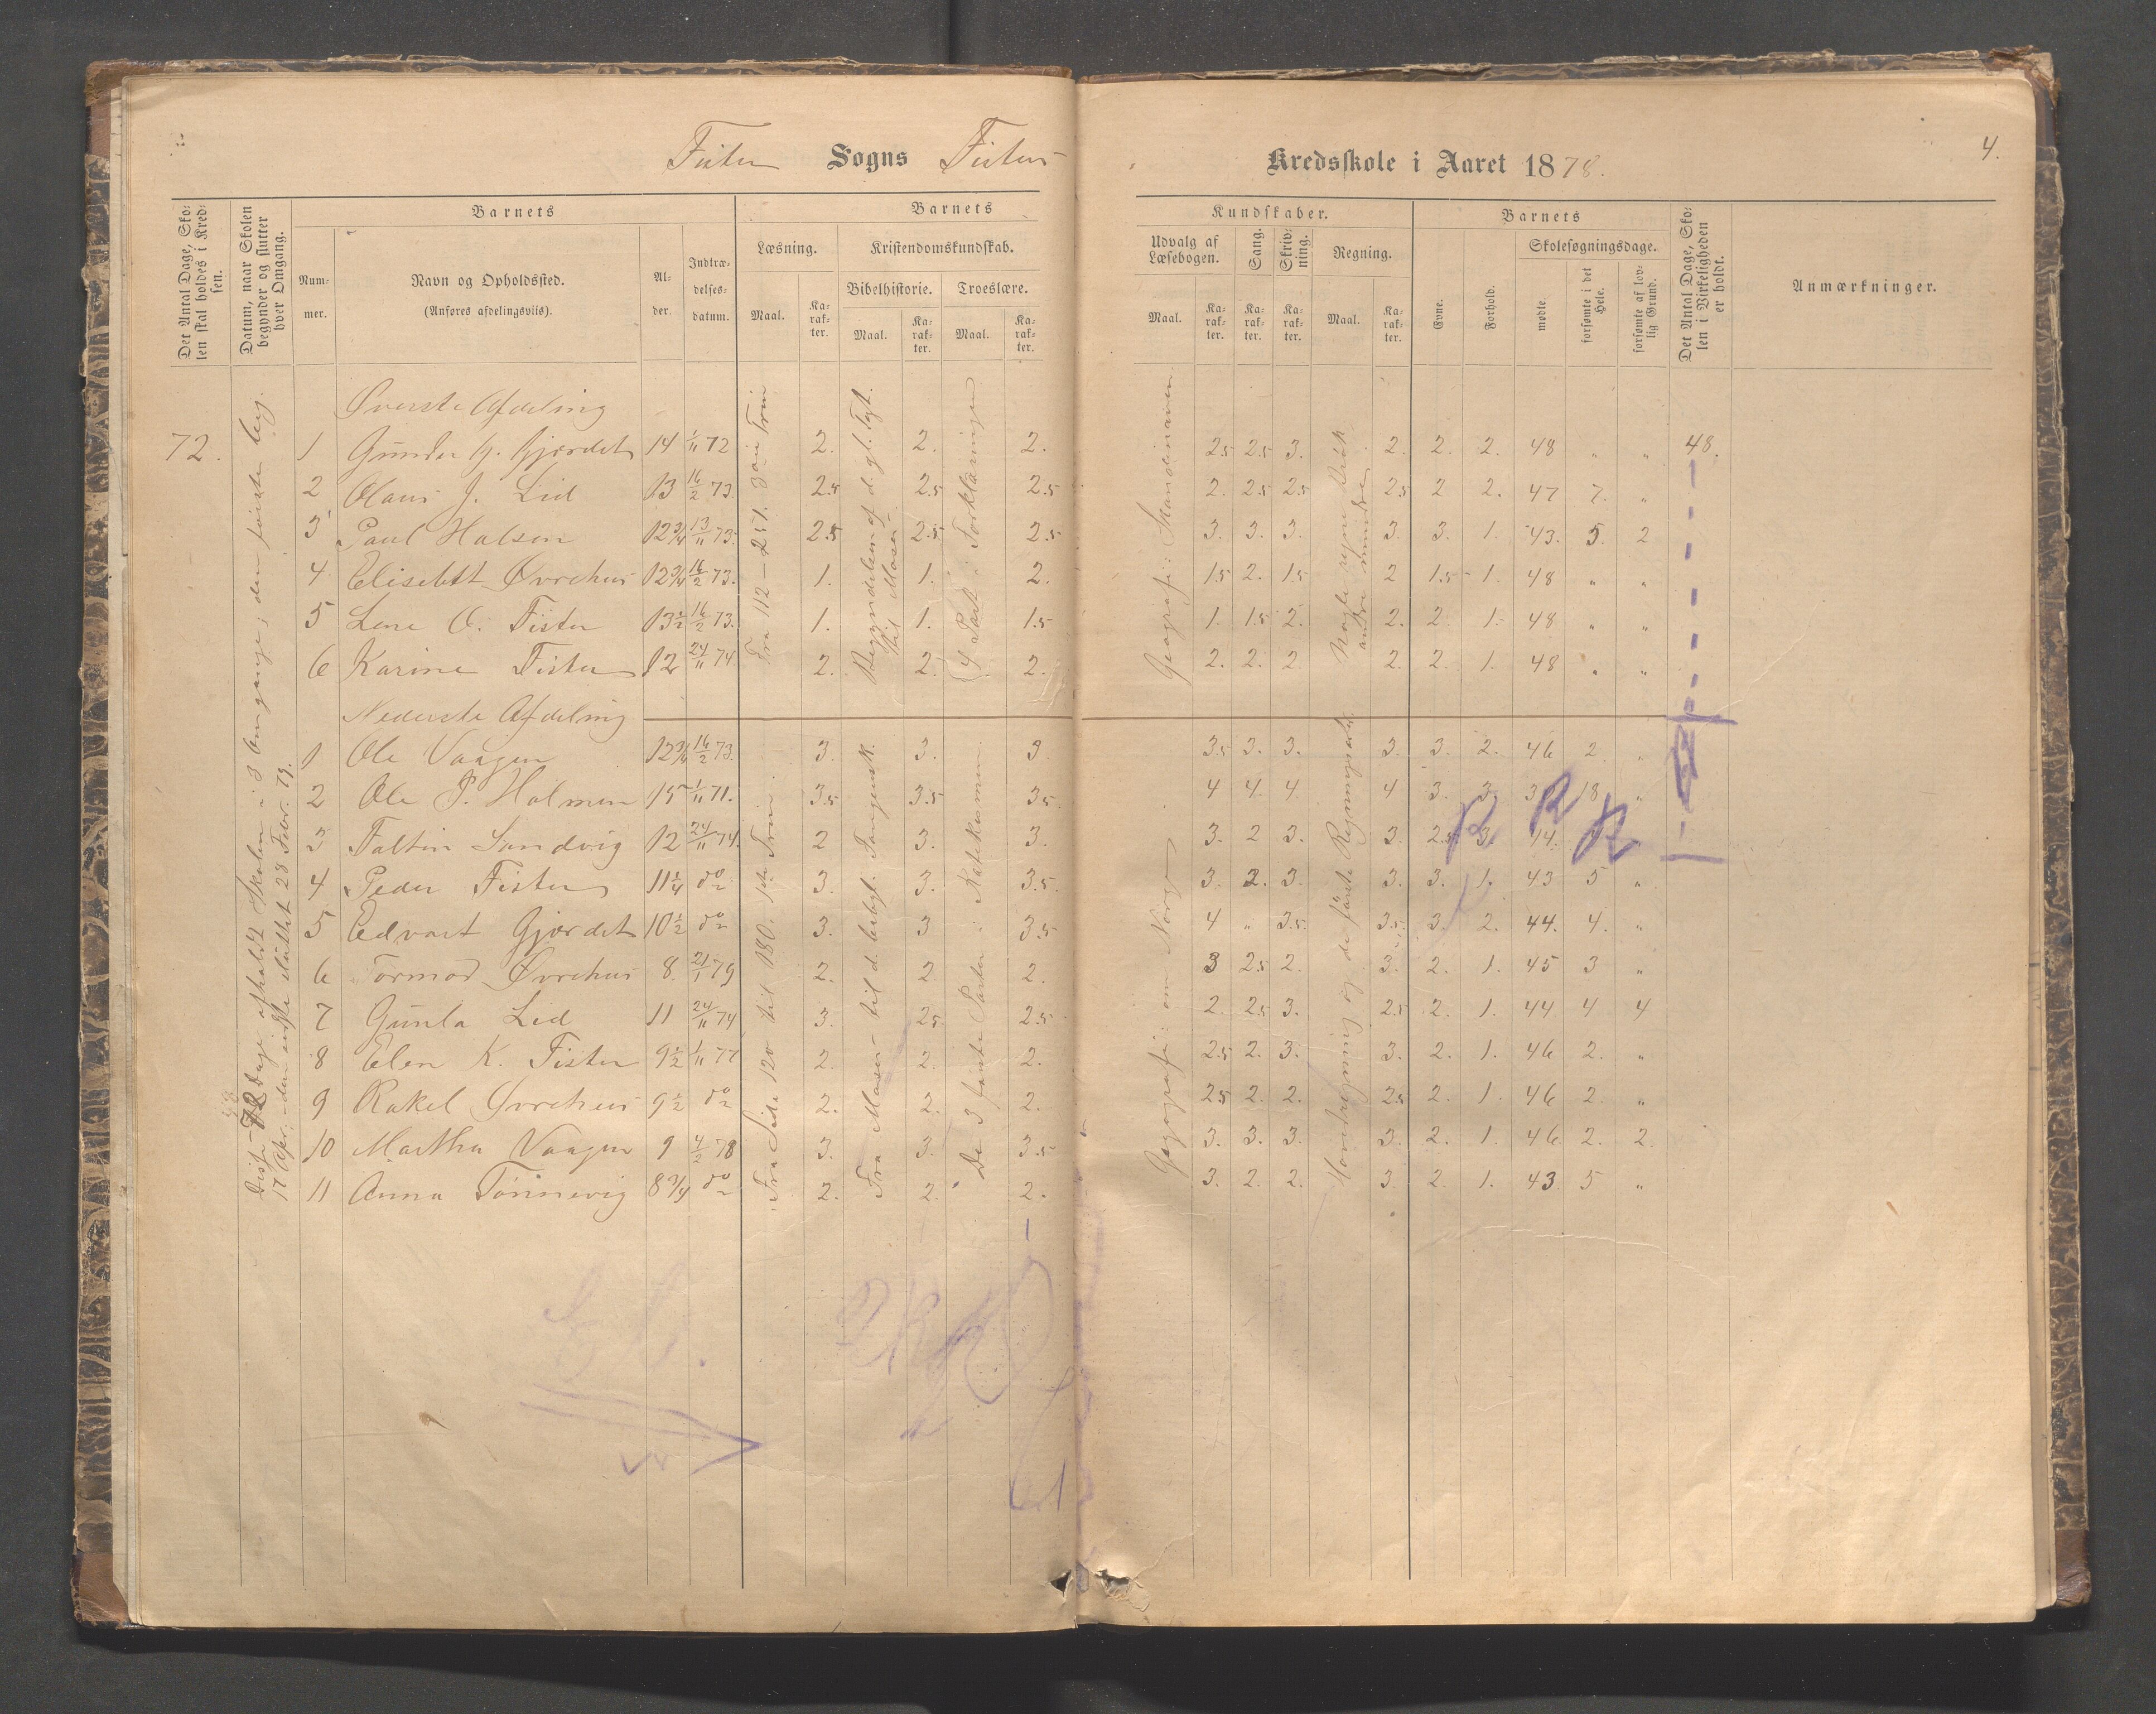 4.
Fister Sogns Fister Kredsskole i Aaret 1878.
Det Antal Dage, Skolen skal holdes i Kredsen.
Datum, naar Skolen begynder og slutter hver Omgang.
Barnets
Nummer.
Navn og Opholdssted.
(Anføres afdelingsviis).
Alder.
Indtrædelsesdatum.
Barnets
Læsning.
Maal.
Karakter.
Kristendomskundskab.
Bibelhistorie.
Maal.
Karakter.
Troeslære.
Maal.
Karakter.
Kundskaber.
Udvalg af Læsebogen.
Maal.
Karakter.
Sang.
Karakter.
Skrivning.
Karakter.
Regning.
Maal.
Karakter.
Barnets
Evne.
Forhold.
Skolesøgningsdage.
mødte.
forsømte i det Hele.
forsømte af lovlig Grund.
Det Antal Dage, Skolen i Virkeligheden er holdt.
Anmærkninger.
Øverste Afdeling
72. 1 Gunder G. Gjærdet 14 1/11 72 2. 2. 2. 2.5 2.5 3. 2. 2. 2. 48 " " 48.
2 Olaus J. Lid 13 16/2 73. 2.5 2.5 2.5 2. 2.5 2.5 2.5 2 2. 47 7. "
3 Paul Halsen 12 3/4 13/11 73. 2.5 2.5 2.5 3. 3. 3. 3. 3. 1. 43. 5. 2
4 Elisebtt Øvrehus 12 3/4 16/2 73. 1. 1. 2. 1.5 2. 1.5 2 1.5 1. 48 " "
5 Lene O. Fister 13 1/2 16/2 73. 1. 1. 1.5 1. 1.5 2. 2. 2. 1. 48 " "
6 Karine Fister 12 24/11 74 2. 2. 2. 2. 2. 2. 2. 2. 1. 48 " "
Nederste Afdeling
1 Ole Vaagen 12 3/4 16/2 73. 3. 3. 3. 3.5 3. 3. 3. 3. 2. 46 2. "
2 Ole P. Holmen 15 1/11 71. 3.5 3.5 3.5 4 4. 4. 4 3. 3. 18 "
3 Faltin Sandvig 12 24/11 74. 2 3. 3. 3. 2 3. 3. 2.5 3. 14.
4 Peder Fister 11 1/4 do 3. 3. 3.5. 3. 2. 3. 3. 3. 1. 43 5 "
5 Edvart Gjærdet 10 1/2 do 3. 3 3.5 4 " 3.5. 3.5. 3. 2. 44. 4. "
6 Tormod Øvrehus 8. 21/1 79 2. 2 2. 3 2.5 2. 3. 2. 1. 45 3 "
7 Gunla Lid 11 24/11 74 3. 2.5 2.5 2. 2.5 3. 2.5 2. 1. 44 4 4
8 Elen K. Fister 9 1/2 1/11 77 2. 2. 2. 2.5 2. 3. 3. 2. 1. 46 2. "
9 Rakel Øvrehus 9 1/2 do 2. 2. 2. 2.5 2. 2. 2.5 2. 1. 46 2. "
10 Martha Vaagen 9 4/2 78 3. 3. 3.5 3. 3. 3. 3. 2. 1. 46 2. 2.
11 Anna Tønnevig 8 3/4 do 2. 2. 2. 3. 2. 2. 3. 2. 1. 43 5 "
Dage afholdt Skolen i 3 Omgange; den første beg.
17 Apr. – den sidste sluttet 28 Febr. 79.
Fra 112 – 251. 3die Trin
Begyndelsen af d. gl. Tgt.
til Moses
4 Part i Forklaringen
Geografi: Skandinavien
Nogle regne Brøk
andre mindre
Fra Side 120 til 180. 1ste Trin.
Fra Moses til d. babyl. Fangensk.
De 3 første Parter i Katekismen.
Geografi: om Norge
Hovedregning og de første Regningsarter
R R R